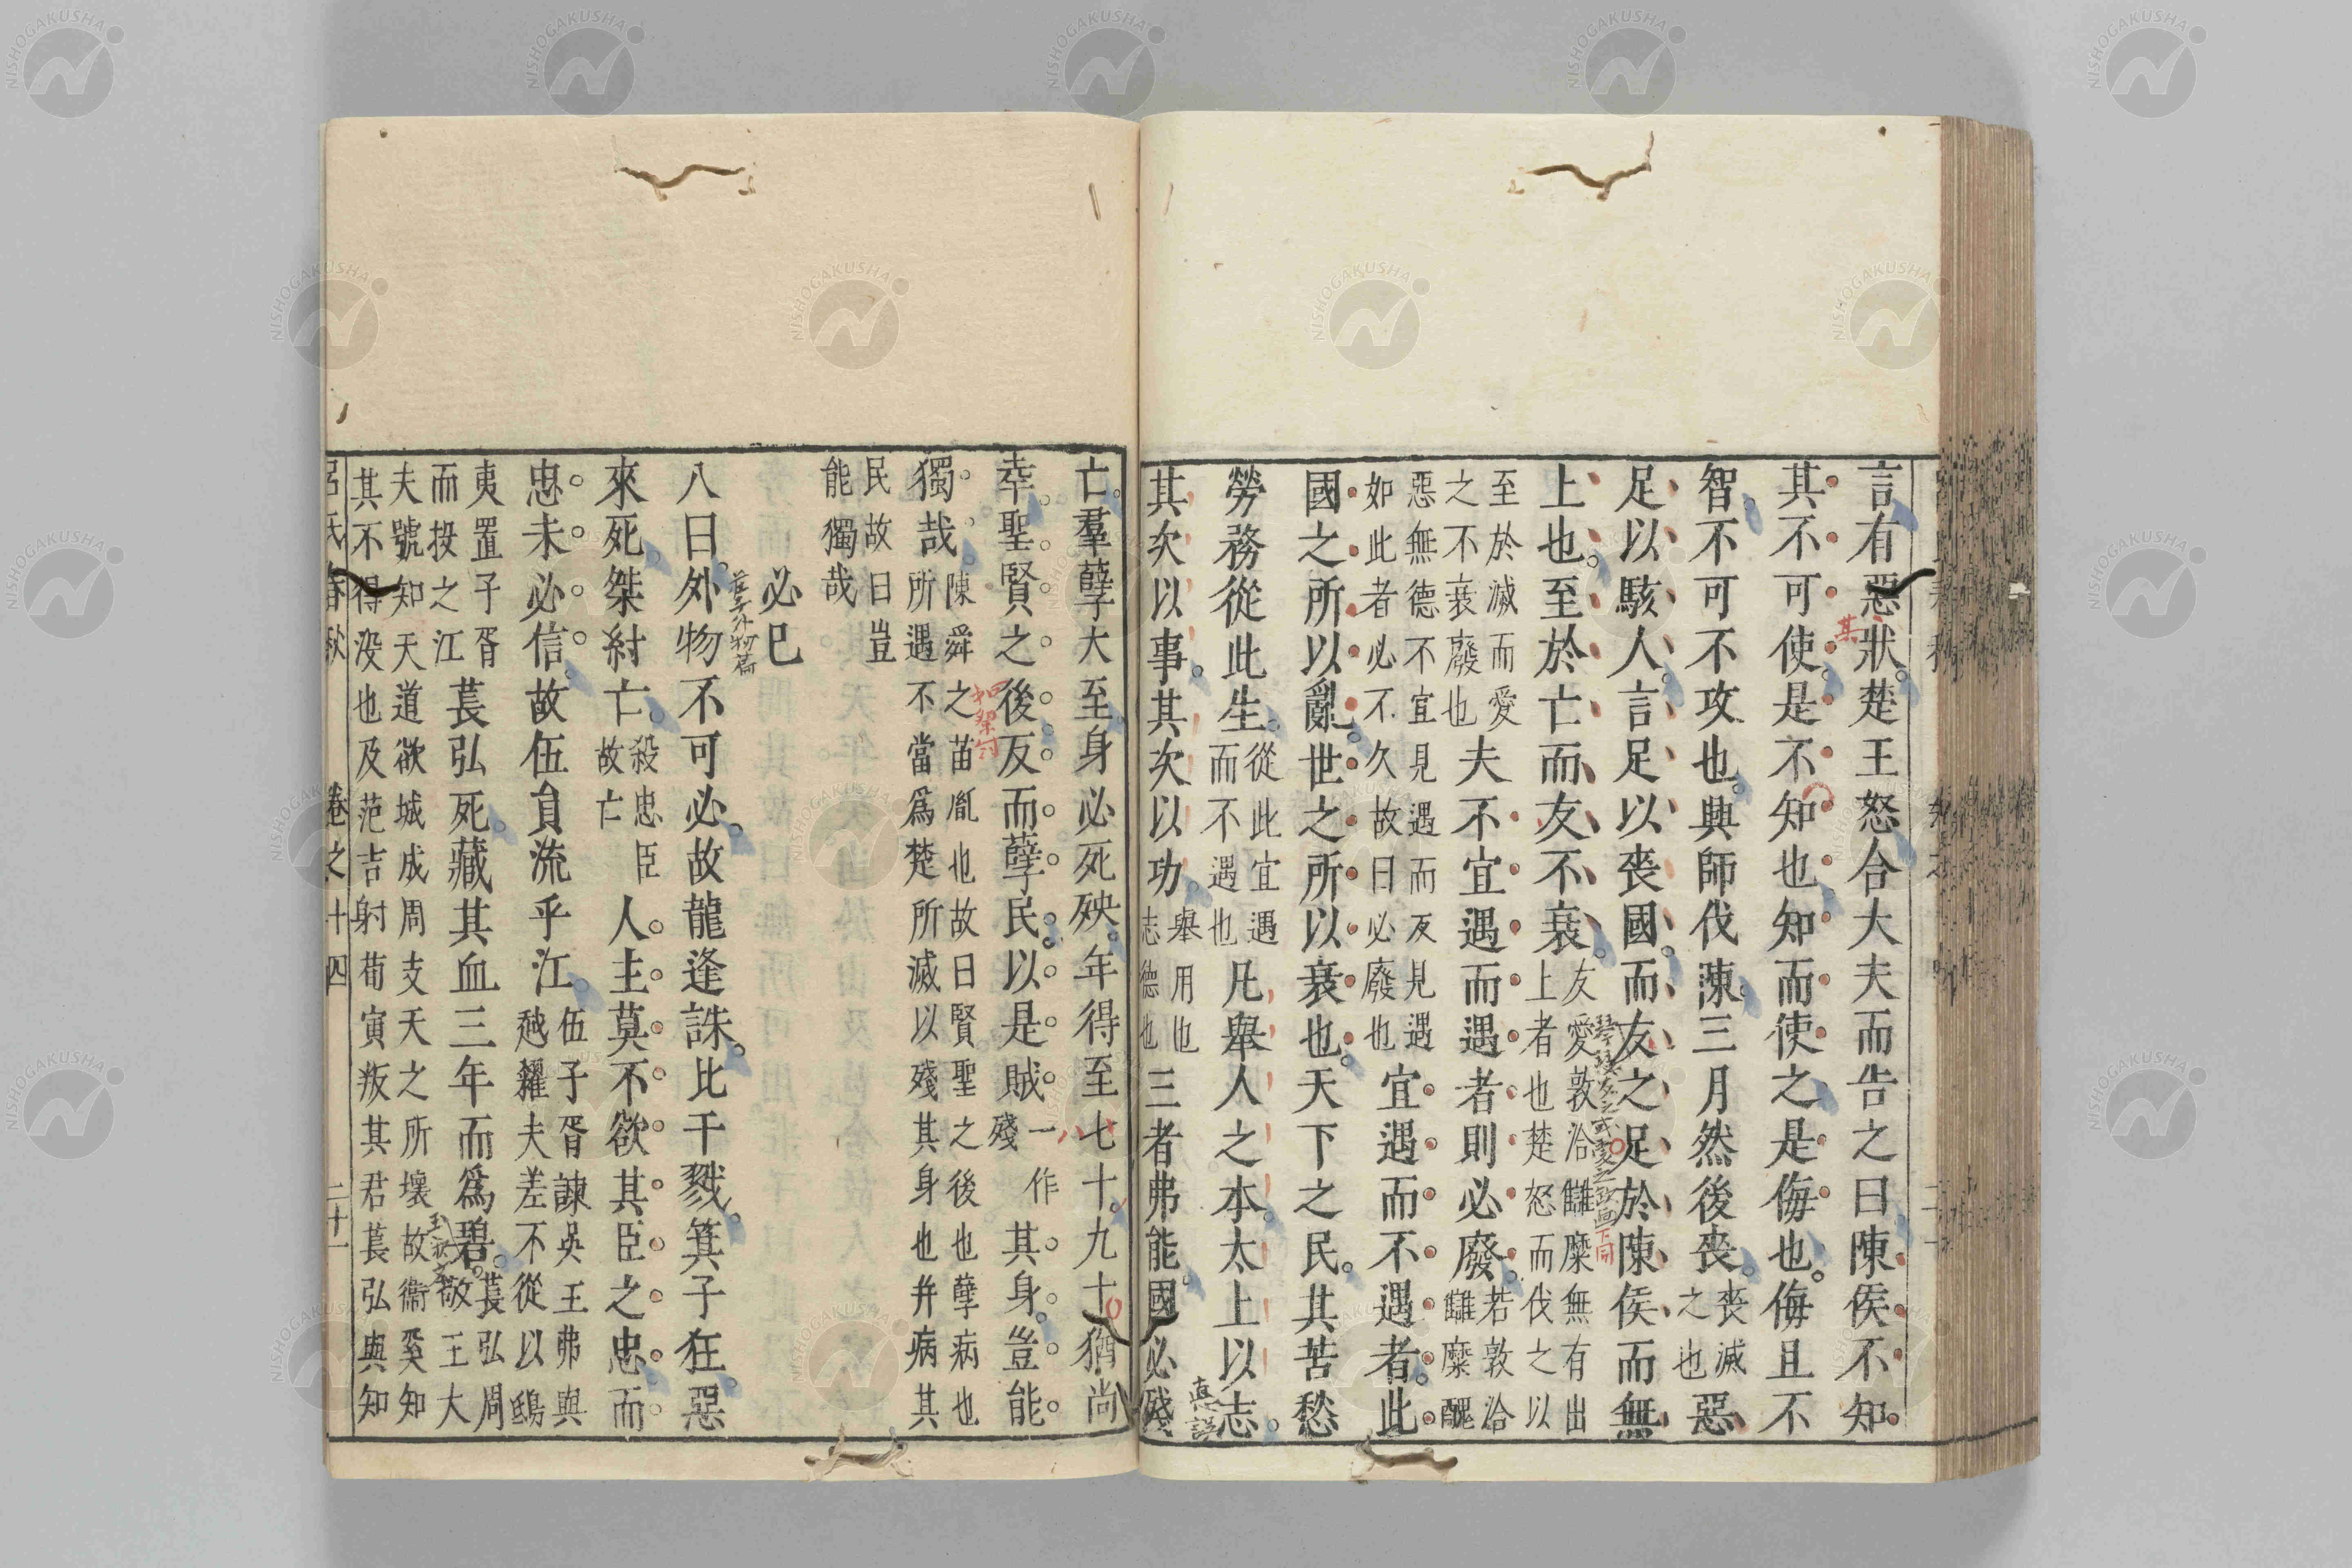 言有惡狀楚王怒合大夫而告之曰陳侯不知
其不可使是不知也知而使之是侮也侮且不
智不可不攻也興師伐陳三月然後喪喪滅之也惡
足以駭人言足以喪國而友之足於陳侯而無
上也至於亡而友不衰友愛敦洽讎糜無有出上者也楚怒而伐之以
至於滅而愛之不衰廢也夫不宜遇而遇者則必廢若敦洽讎糜醜
惡無德不宜見遇而反見遇如此者必不久故曰必廢也宜遇而不遇者此
國之所以亂世之所以衰也天下之民其苦愁
勞務從此生從此宜遇而不遇也凡舉人之本太上以志
其次以事其次以功舉用也志德也三者弗能國必殘
亡羣孽大至身必死殃年得至七十九十猶尚
幸聖賢之後反而孽民以是賊一作殘其身豈能
獨哉陳舜之苗胤也故曰賢聖之後也孽病也所遇不當爲楚所滅以殘其身也并病其
民故曰豈能獨哉
必已
莊子外物篇
八曰外物不可必故龍逢誅比干戮箕子狂惡
來死桀紂亡殺忠臣故亡人主莫不欲其臣之忠而
忠未必信故伍員流乎江伍子胥諫吳王弗與越糴夫差不從以鴟
夷置子胥而投之江萇弘死藏其血三年而爲碧萇弘周敬王大
夫號知天道欲城成周支天之所壞故衞奚知
其不得没也及范吉射荀寅叛其君萇弘與知
呂氏春秋 卷之十四 二十一
NISHOGAKUSHA